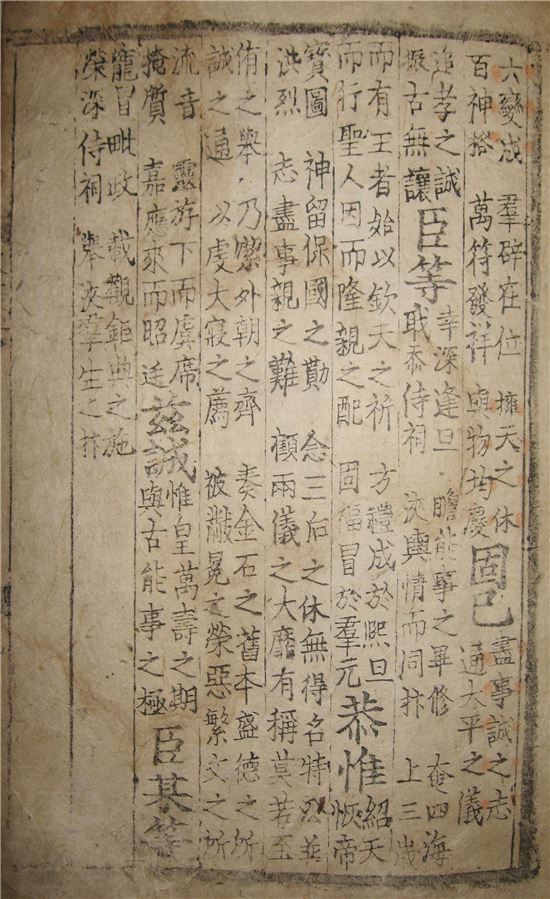 六變成 羣辟在位 擁天之休
百神格 萬符發祥 與物均慶
固已
盡事誠之志
通大平之儀
追孝之誠
振古無讓
臣等
幸深逢旦 瞻能事之畢修 奄四海
忝侍祠 夾輿情而同抃 上三歲
而有王者始以欽天之祈 方禮成於熙旦
而行聖人因而隆親之配 固福冒於羣元
恭惟
紹天
恢帝
寳圖 神留保國之勤 念三后之休無得名特以並
洪烈 志盡事親之難 顧兩儀之大靡有稱莫若至
侑之舉乃潔外朝之齊 奏金石之舊本盛德之所
誠之通 以虔大寢之薦 被黻冕之榮惡繁文之所
流音 靈游下而虞席
掩質 嘉應來而昭廷
茲誠
惟皇萬壽之期
與古能事之極
臣某等
寵冒毗政 載觀鉅典之施
榮深侍祠 舉夾羣生之抃